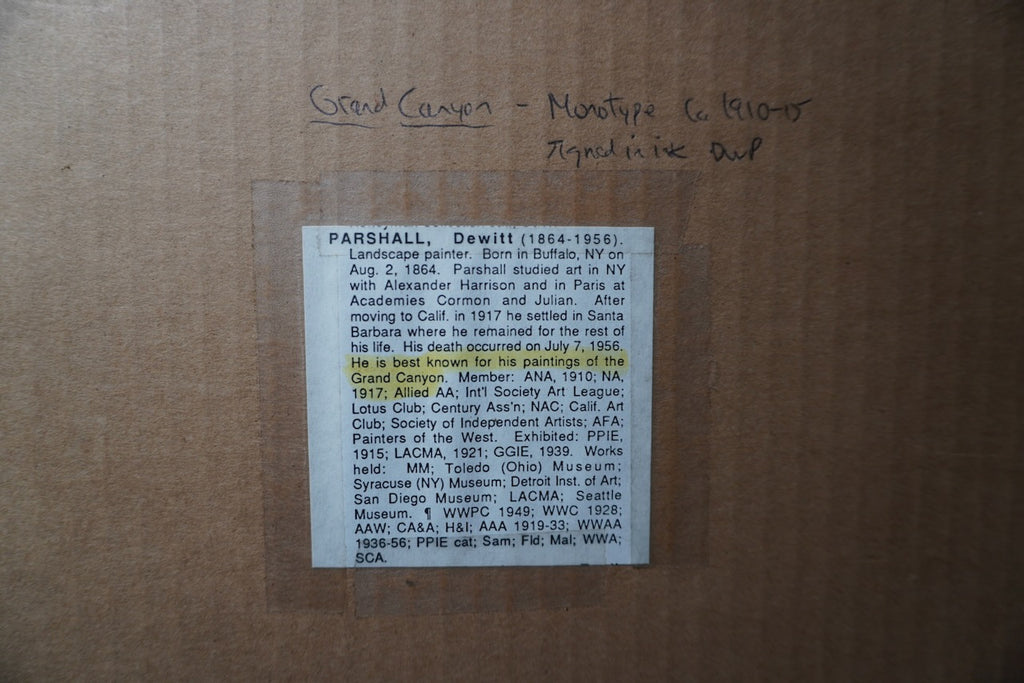 Grand Canyon - Monotype Ca 1910-15
signed in ink DwP
PARSHALL, Dewitt (1864-1956).
Landscape painter. Born in Buffalo, NY on
Aug. 2, 1864. Parshall studied art in NY
with Alexander Harrison and in Paris at
Academies Cormon and Julian. After
moving to Calif. in 1917 he settled in Santa
Barbara where he remained for the rest of
his life. His death occurred on July 7, 1956.
He is best known for his paintings of the
Grand Canyon. Member: ANA, 1910; NA,
1917; Allied AA; Int'l Society Art League;
Lotus Club; Century Ass'n; NAC; Calif. Art
Club; Society of Independent Artists; AFA;
Painters of the West. Exhibited: PPIE,
1915; LACMA, 1921; GGIE, 1939. Works
held: MM; Toledo (Ohio) Museum;
Syracuse (NY) Museum; Detroit Inst. of Art;
San Diego Museum; LACMA; Seattle
Museum. ¶ WWPC 1949; WWC 1928;
AAW; CA&A; H&I; AAA 1919-33; WWAA
1936-56; PPIE cat; Sam; Fld; Mal; WWA;
SCA.